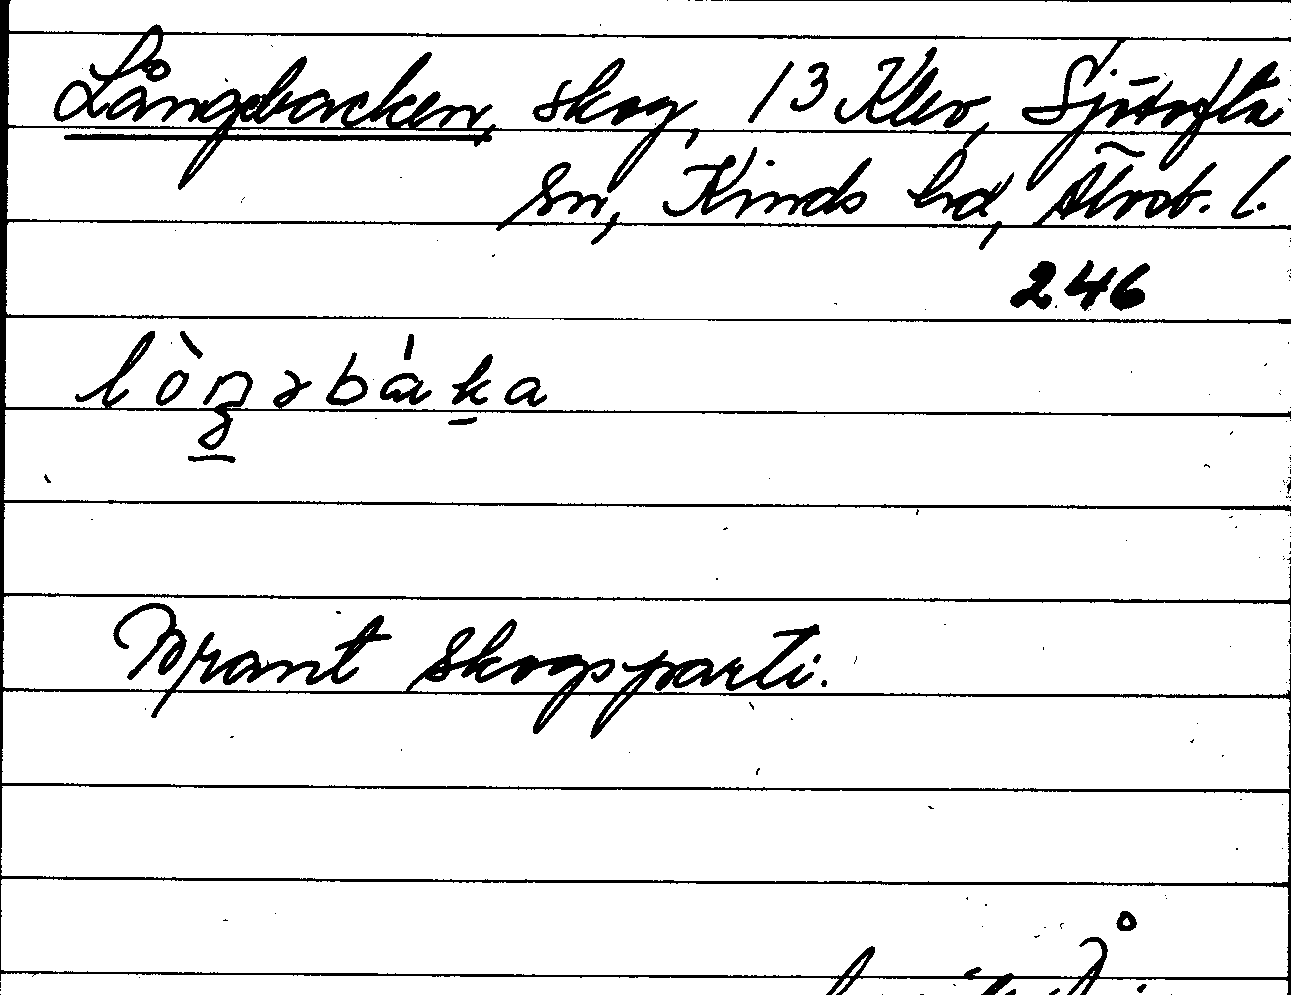 Långebacken, skog, 13 Klev, Sjötofta
sn, Kinds hd, Älvsb. l.
246
lòŋəbáka
Brant skogsparti.